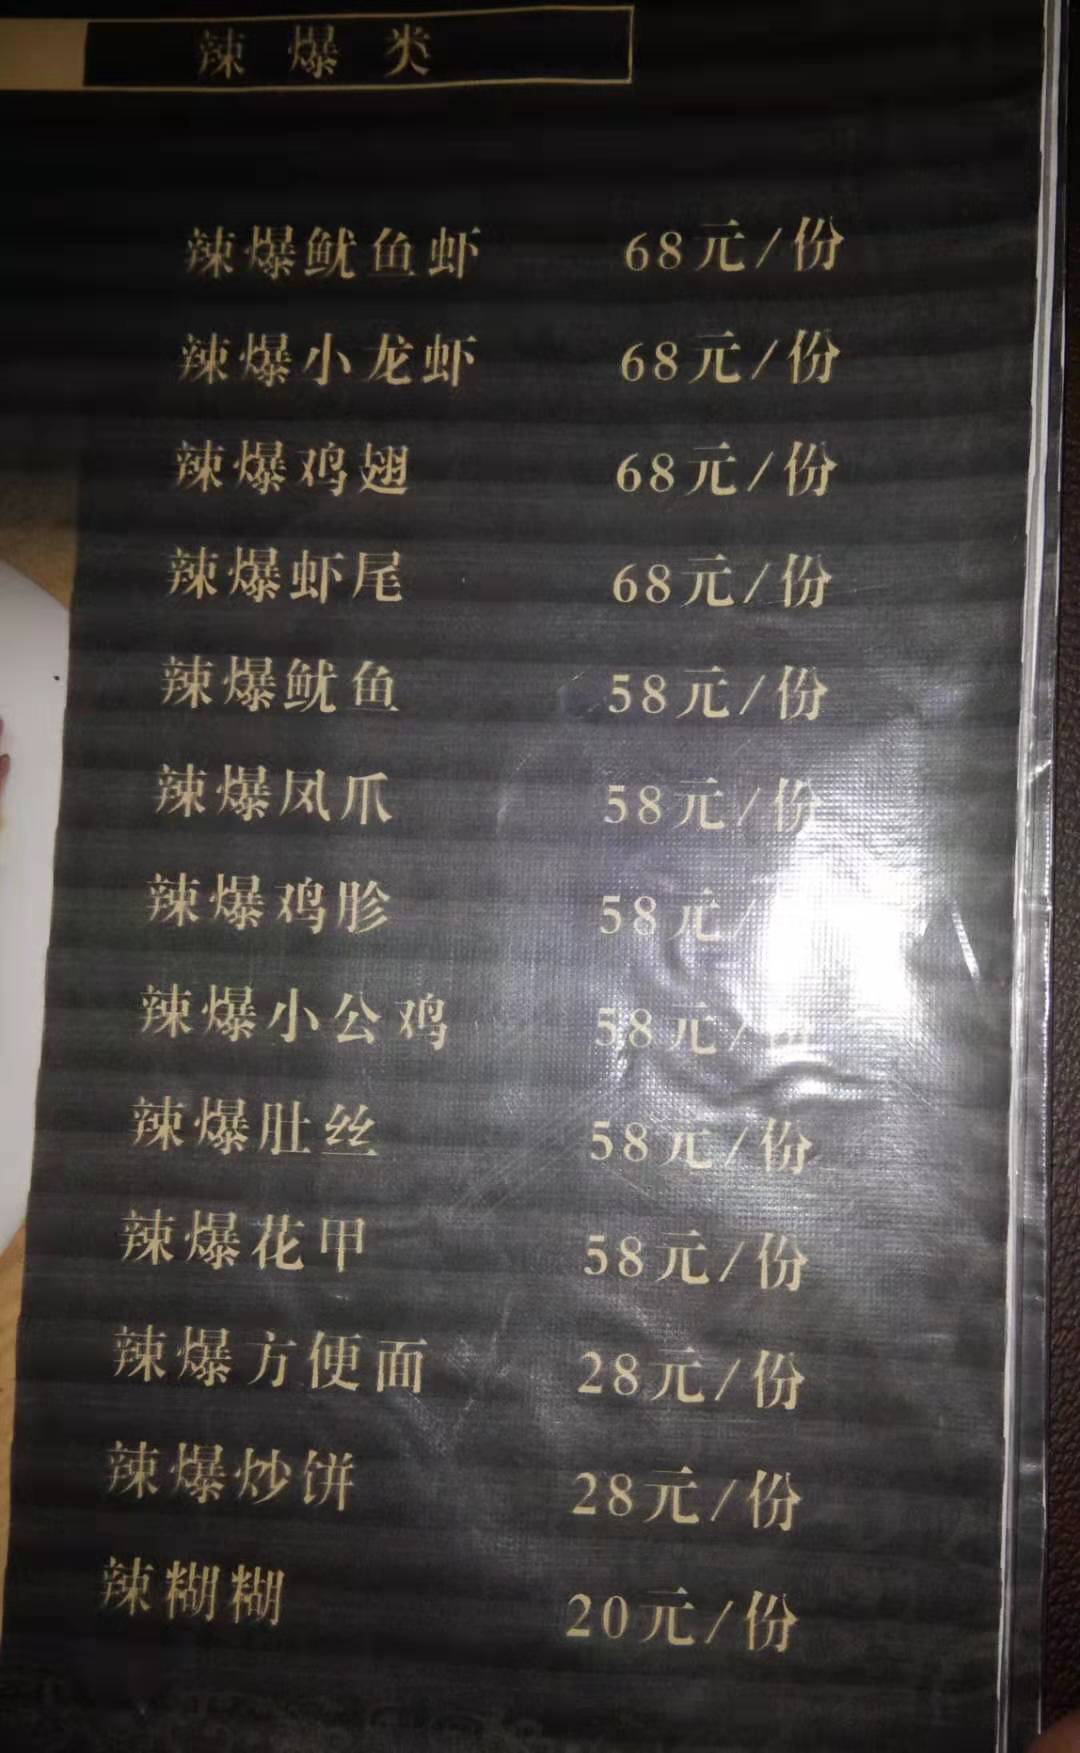 辣爆类
辣爆鱿鱼虾 68元/份
辣爆小龙虾 68元/份
辣爆鸡翅 68元/份
辣爆虾尾 68元/份
辣爆鱿鱼 58元/份
辣爆凤爪 58元/份
辣爆鸡胗 58元/
辣爆小公鸡 58元/份
辣爆肚丝 58元/份
辣爆花甲 58元/份
辣爆方便面 28元/份
辣爆炒饼 28元/份
辣糊糊 20元/份